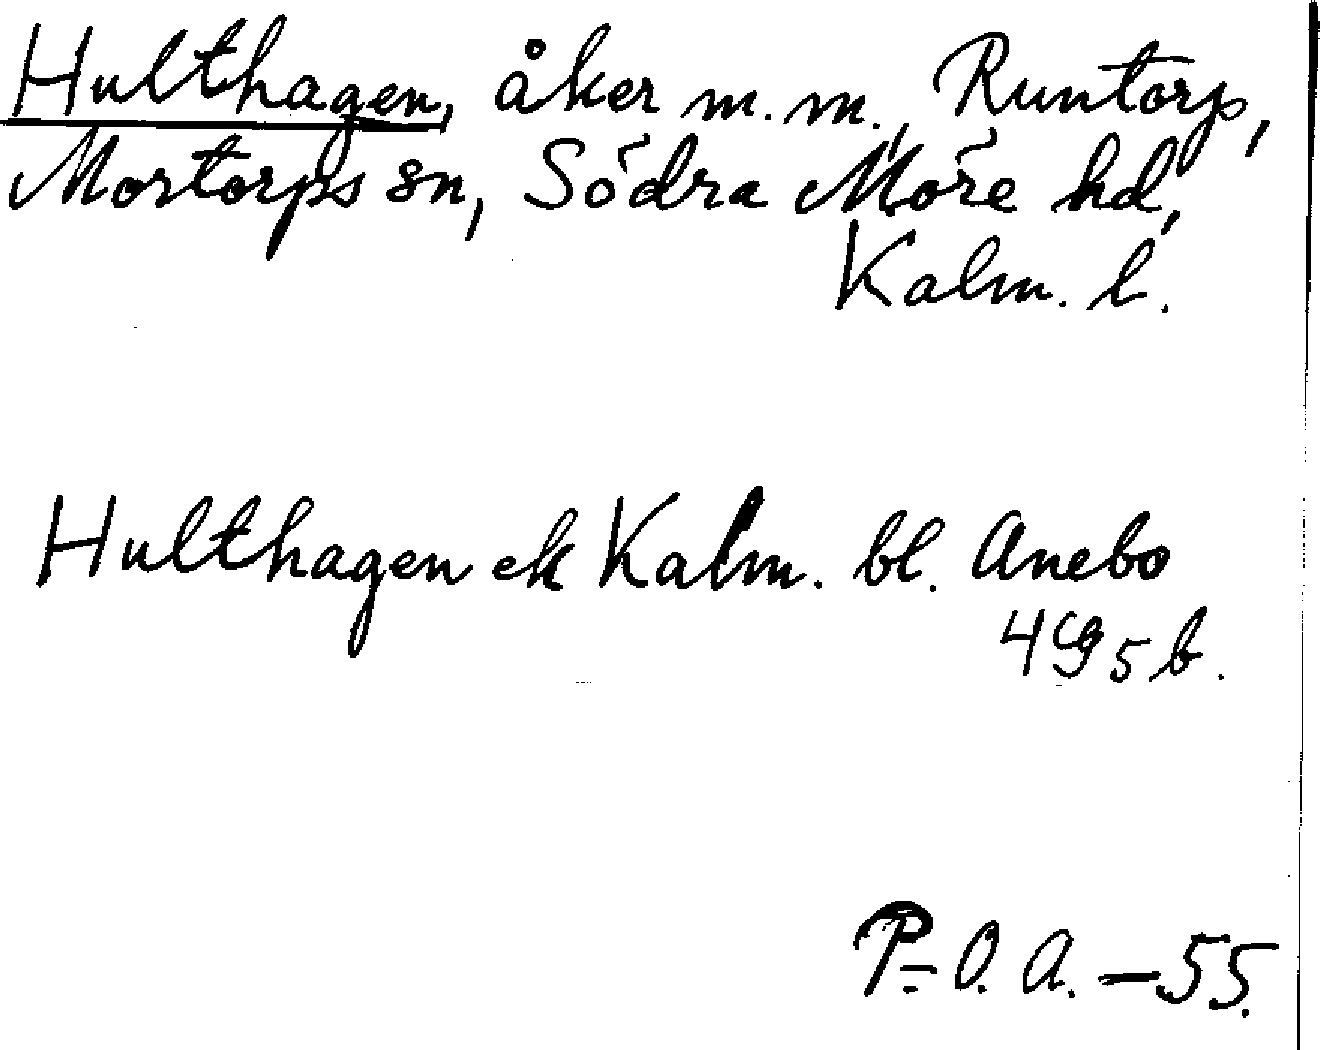 Hulthagen, åker m.m., Runtorp,
Mortorps sn, Södra Möre hd,
Kalm. l.
Hulthagen ek Kalm. bl. Anebo
4G5b.
P.-O. A. – 55.